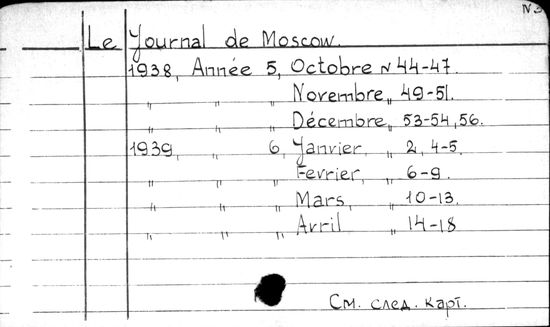 N3
Le Journal de Moscow.
1938, Année 5, Octobre N 44-47.
„ „ „ Novembre „ 49-51.
„ „ „ Décembre „ 53-54, 56.
1939, „ 6, Janvier, „ 2, 4-5.
„ „ „ Fevrier, „ 6-9.
„ „ „ Mars, „ 10-13.
„ „ „ Avril „ 14-18
См. след. карт.